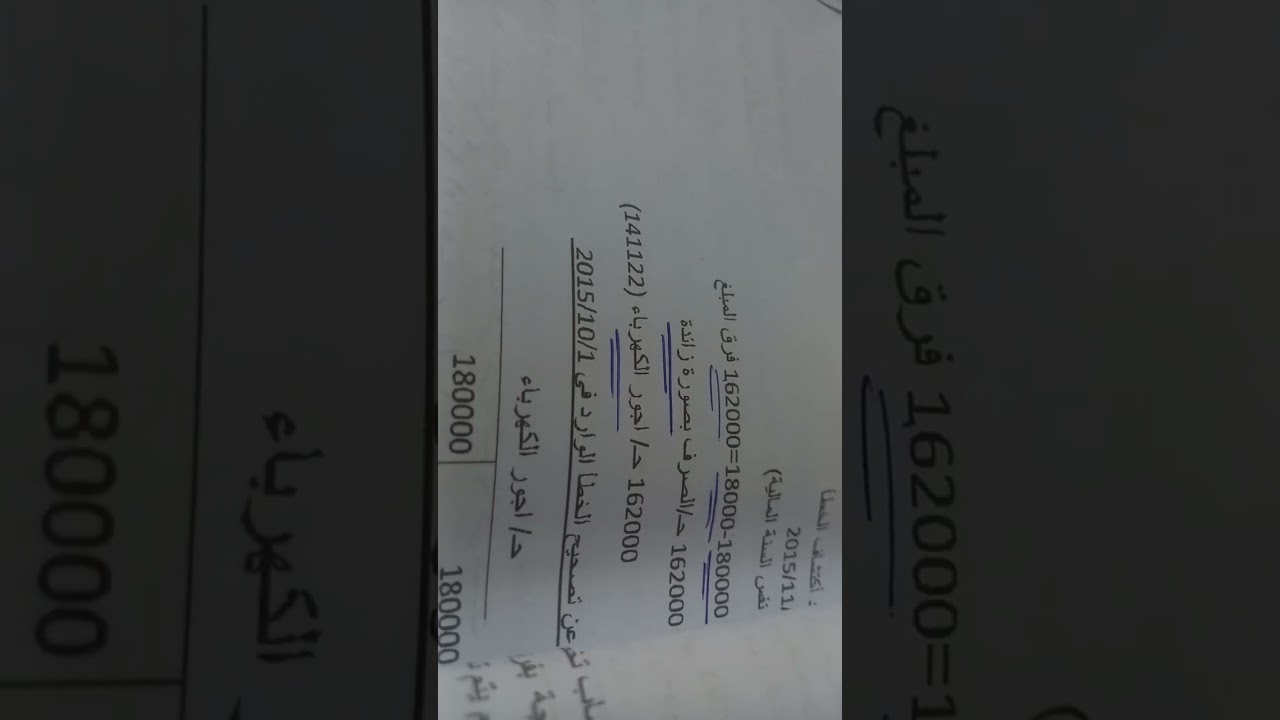 : أكتشاف الخطأ
2015/11/
نفس السنة المالية)
180000-18000=162000 فرق المبلغ
162000 حـ/الصرف بصورة زائدة
162000 حـ/ اجور الكهرباء (141122)
عن تصحيح الخطأ الوارد في 2015/10/1
حـ/ اجور الكهرباء
180000
180000